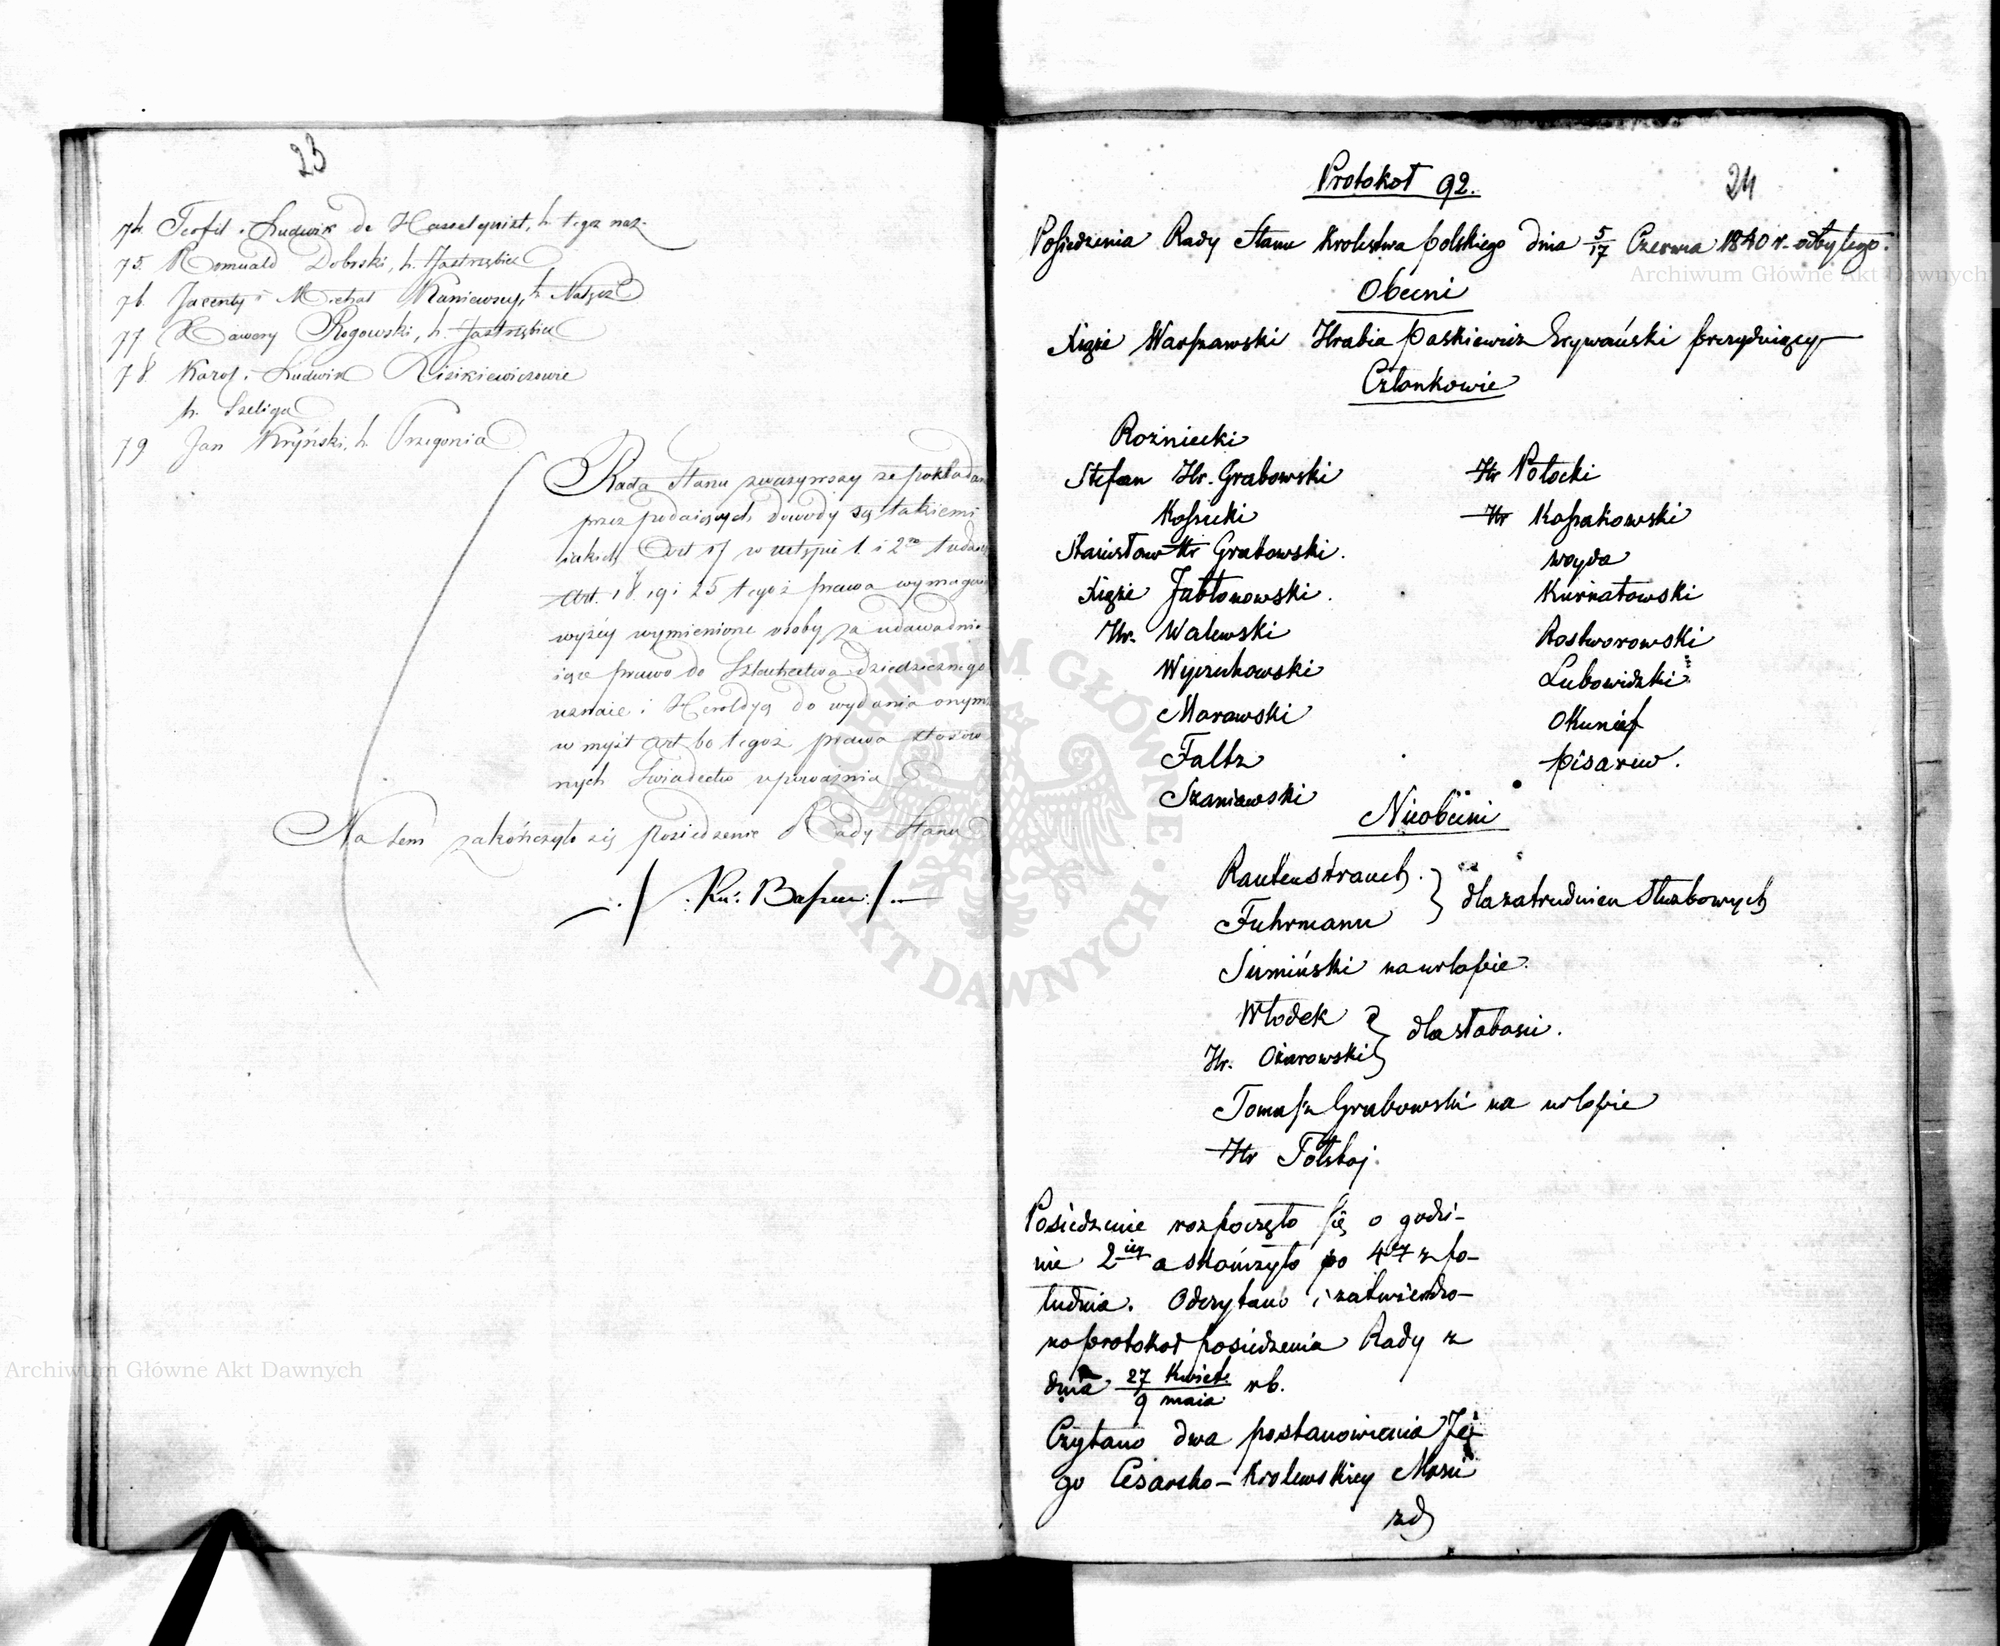 23
74. Teofil i Ludwik de Hasselquist, h. tegoż naz.
75. Romuald Dobrski, h. Jastrzębiec
76. Jacenty i Michał Kaniewscy, h. Nałęcz
77 Xawery Rogowski, h. Jastrzębiec
78. Karol i Ludwik Lisikiewiczowie
h. Szeliga
79 Jan Kryński, h. Przegonia
Rada Stanu zważywszy że pokładane
przez podaiących dowody są takiemi
iakich Art 17 w ustępie 1. i 2
Art. 18. 19 i 25 tegoż prawa wymagaią
wyżey wymienione osoby za udawadnia
iące prawo do Szlachectwa dziedzicznego
uznaie i Heroldyą do wydania onym
w myśl Art 60 tegoż prawa stosow
nych Świadectw upoważnia
Na tem zakończyło się posiedzenie Rady Stanu
24
Protokół 92.
Posiedzenia Rady Stanu Królestwa polskiego dnia 5/17 Czerwca 1840 r. odbytego.
Obecni
Xiąże Warszawski Hrabia Paskiewicz Erywański prezyduiący
Członkowie
Rożniecki
Stefan Hr. Grabowski
Kossecki
Stanisław Hr Grabowski.
Xiąże Jabłonowski.
Hr. Walewski
Wyczechowski
Morawski
Faltz
Szaniawski
Hr Potocki
Hr Kossakowski
Woyda
Kurnatowski
Rostworowski
Lubowidzki
Okunief
Pisarew.
Nieobecni
Rautenstrauch.
Fuhrmann
dla zatrudnien służbowych
Sumiński na urlopie.
Włodek
Hr. Ożarowski
dla słabości.
Tomasz Grabowski na urlopie
Hr Tołstoj.
Posiedzenie rozpoczęło się o godzi-
nie 2iey a skończyło po 4ey z po-
łudnia. Odczytano i zatwierdzo-
no protokół posiedzenia Rady z
dnia 27 Kwiet/9 maia rb.
Czytano dwa postanowienia Je-
go Cesarsko-Krolewskiey Mości
zd
Archiwum Główne Akt Dawnych
Archiwum Główne Akt Dawnych
ARCHIWUM GŁÓWNE · AKT DAWNYCH ·